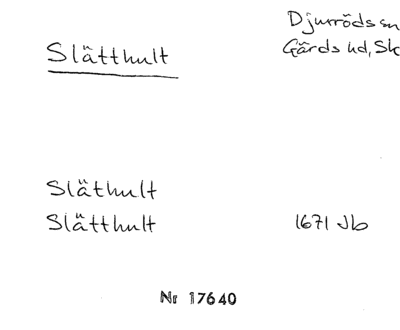 Djurröds sn
Slätthult
Gärds hd, Sk
Släthult
Slätthult 1671 Jb
Nr 17640